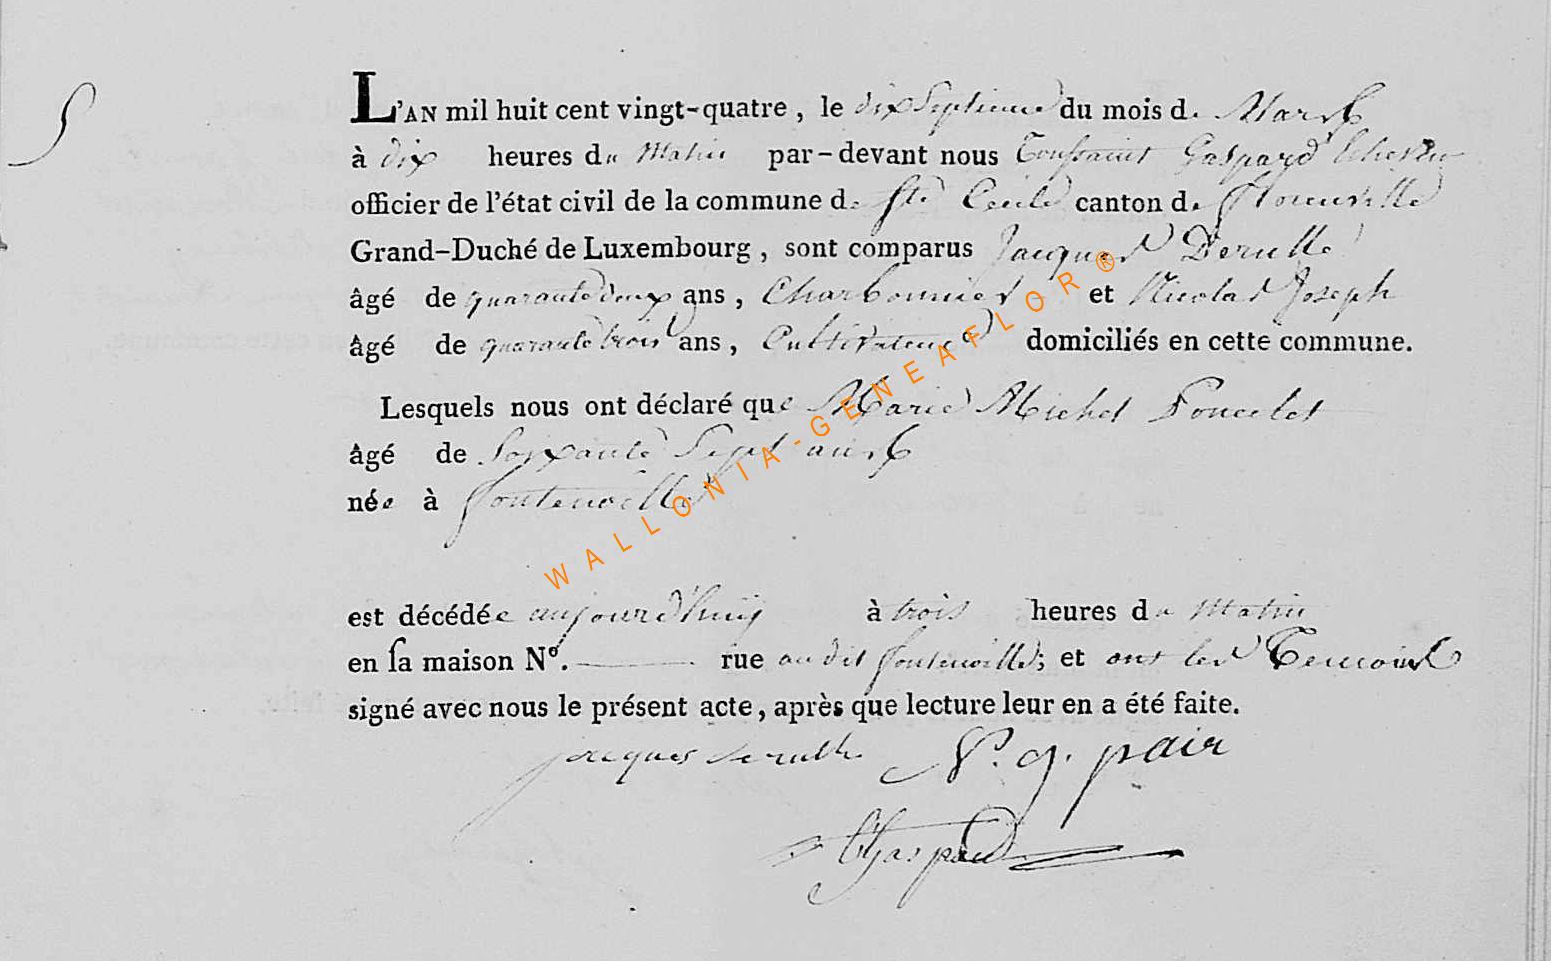 5
L'AN mil huit cent vingt-quatre, le dix Septieme du mois de Mars
à dix heures du Matin par-devant nous Toussaint Gaspard
officier de l'état civil de la commune de Ste Cecile canton de florenville
Grand-Duché de Luxembourg, sont comparus Jacques Derulle
âgé de quarante deux ans, Charbonnier et Nicolas Joseph
âgé de quarante trois ans, Cultivateur domiciliés en cette commune.
Lesquels nous ont déclaré que Marie Michel Poncelet
âgé de Soixante Sept ans
née à fontenoille
est décédée aujourd'huy à trois heures du Matin
en sa maison N°. rue au dit fontenoille; et ont les Temoins
signé avec nous le présent acte, après que lecture leur en a été faite.
jacques derulle N. j. pair
Tgaspard
WALLONIA-GENEAFLOR®